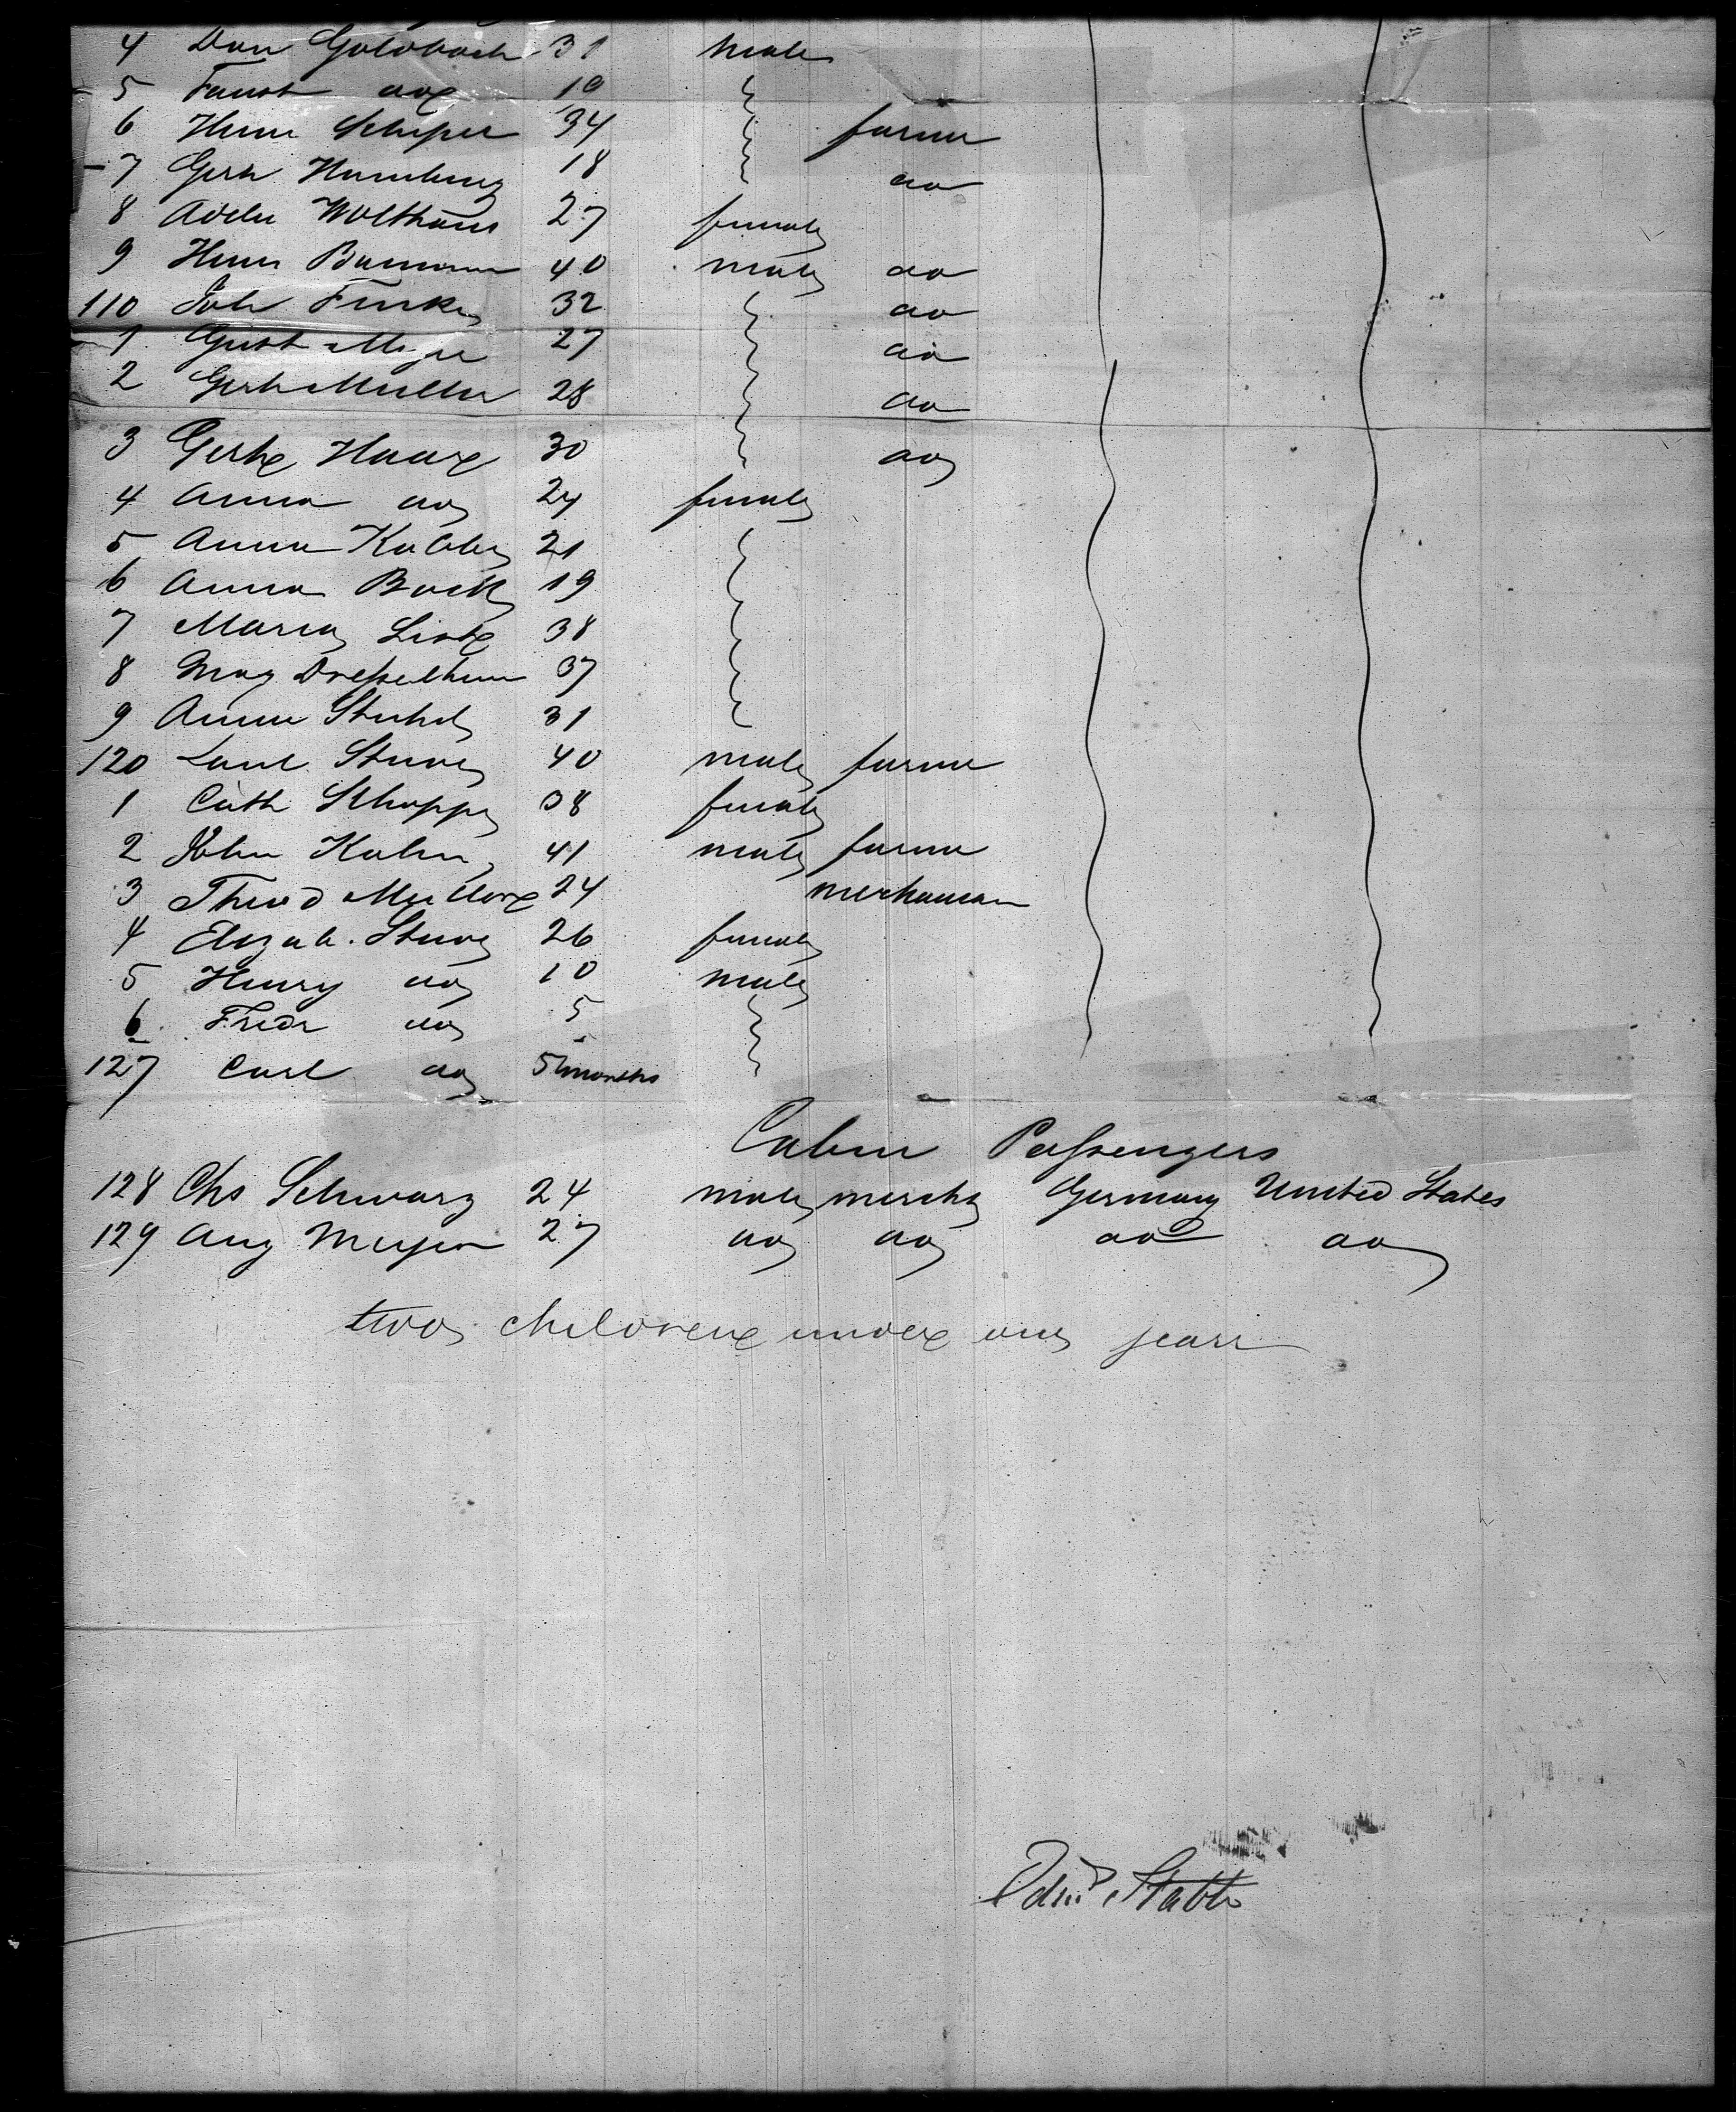 4 Dan Goldbach 31 male
5 Faust do 10
6 Herm Schiper 34 farmer
7 Gerh Humburg 18 do
8 Adele Wolthaus 27 female
9 Herm Bumann 40 male do
110 Joh Finke 32 do
1 Gust Meyer 27 do
2 Gerh Muller 28 do
3 Gerh Haax 30 do
4 Anna do 24 female
5 Anna 21
6 Anna Bock 19
7 Maria Liste 38
8 Mag 37
9 Anna 31
120 Stuve 40 male farmer
1 Cath Schoppe 38 female
2 John Kahn 41 male farmer
3 Theod 24
4 Elizab. Stuve 26 female
5 Henry do 10 male
6. Fredr do 5
127 Carl do 5 months
Cabin Passengers
128 Chs Schwarz 24 male mercht Germany United States
129 Aug Meyer 27 do do do do
two children under one year